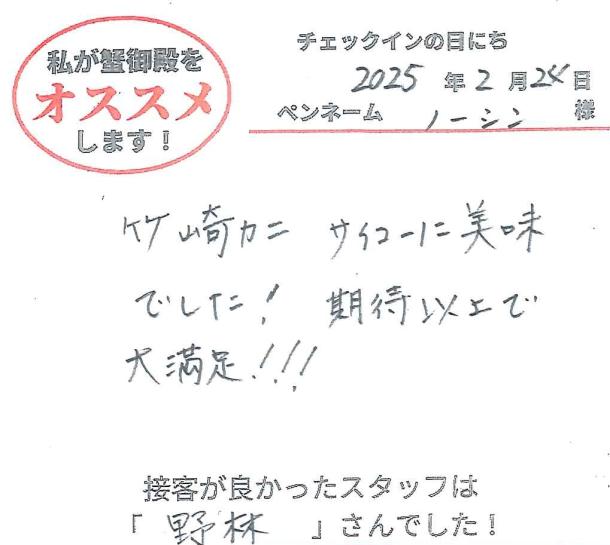 私が蟹御殿を
オススメ
します！
チェックインの日にち
2025 年 2 月 24 日
ペンネーム ノーシン 様
竹崎カニ サイコーに美味
でした！ 期待以上で
大満足!!!
接客が良かったスタッフは
「 野林 」さんでした！